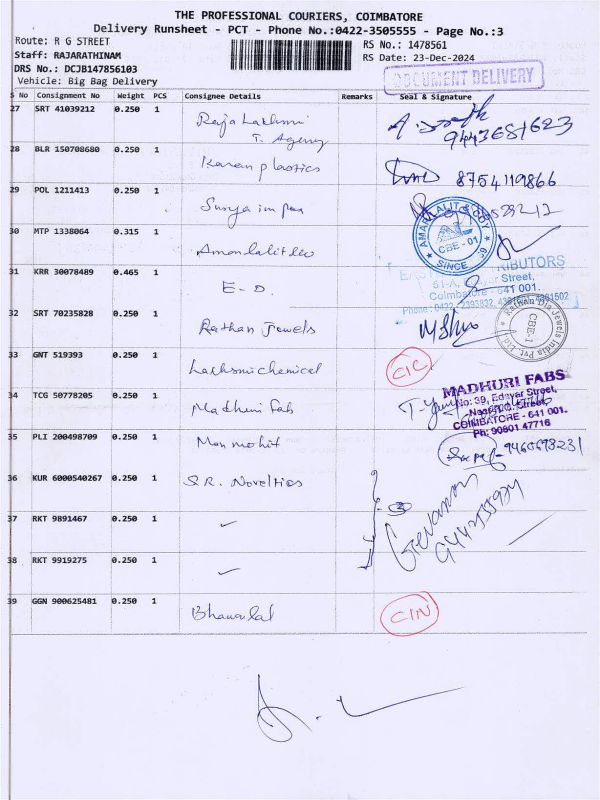 THE PROFESSIONAL COURIERS, COIMBATORE
Delivery Runsheet - PCT - Phone No.:0422-3505555 - Page No.:3
Route: R G STREET
RS No.: 1478561
Staff: RAJARATHINAM
RS Date: 23-Dec-2024
DRS No.: DCJB147856103
Vehicle: Big Bag Delivery
DOCUMENT DELIVERY
S No Consignment No Weight PCS Consignee Details Remarks Seal & Signature
27 SRT 41039212 0.250 1 Raja Lakshmi
T. Agency
28 BLR 150708680 0.250 1 Karan plastics 8754119866
29 POL 1211413 0.250 1 Surya impex
30 MTP 1338064 0.315 1 Amarlalit
CBE - 01
SINCE
31 KRR 30078489 0.465 1 E-D.
51-A,
Street,
Coimbatore - 641 001.
32 SRT 70235828 0.250 1 Rathan Jewels
Rathan Dia Jewels India Pvt. Ltd.
CBE-1
33 GNT 519393 0.250 1 Lakshmi chemical
34 TCG 50778205 0.250 1 Madhuri fab
MADHURI FABS
No: 39, Edayar Street,
COIMBATORE - 641 001.
Ph: 90801 47716
35 PLI 200498709 0.250 1 Man mohit
36 KUR 6000540267 0.250 1 S.R. Novelties
37 RKT 9891467 0.250 1
38 RKT 9919275 0.250 1
39 GGN 900625481 0.250 1 Bhawarlal